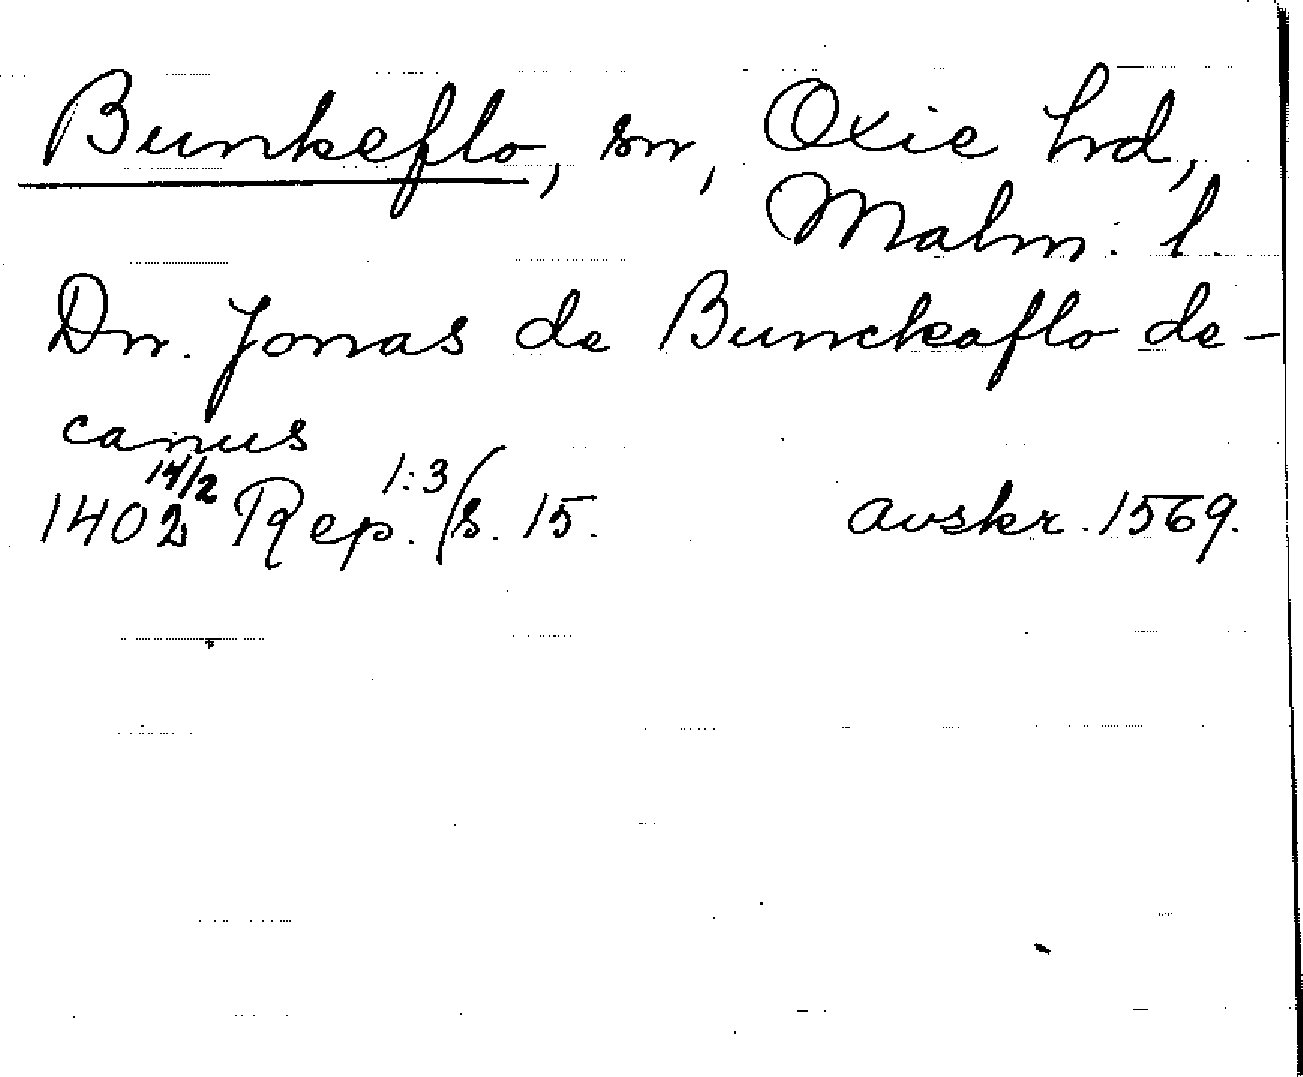 Bunkeflo, sn, Oxie hrd,
Malm. l.
Dn. Jonas de Bunckaflo de-
canus
1402 14/2 Rep. 1:3 s. 15. avskr. 1569.